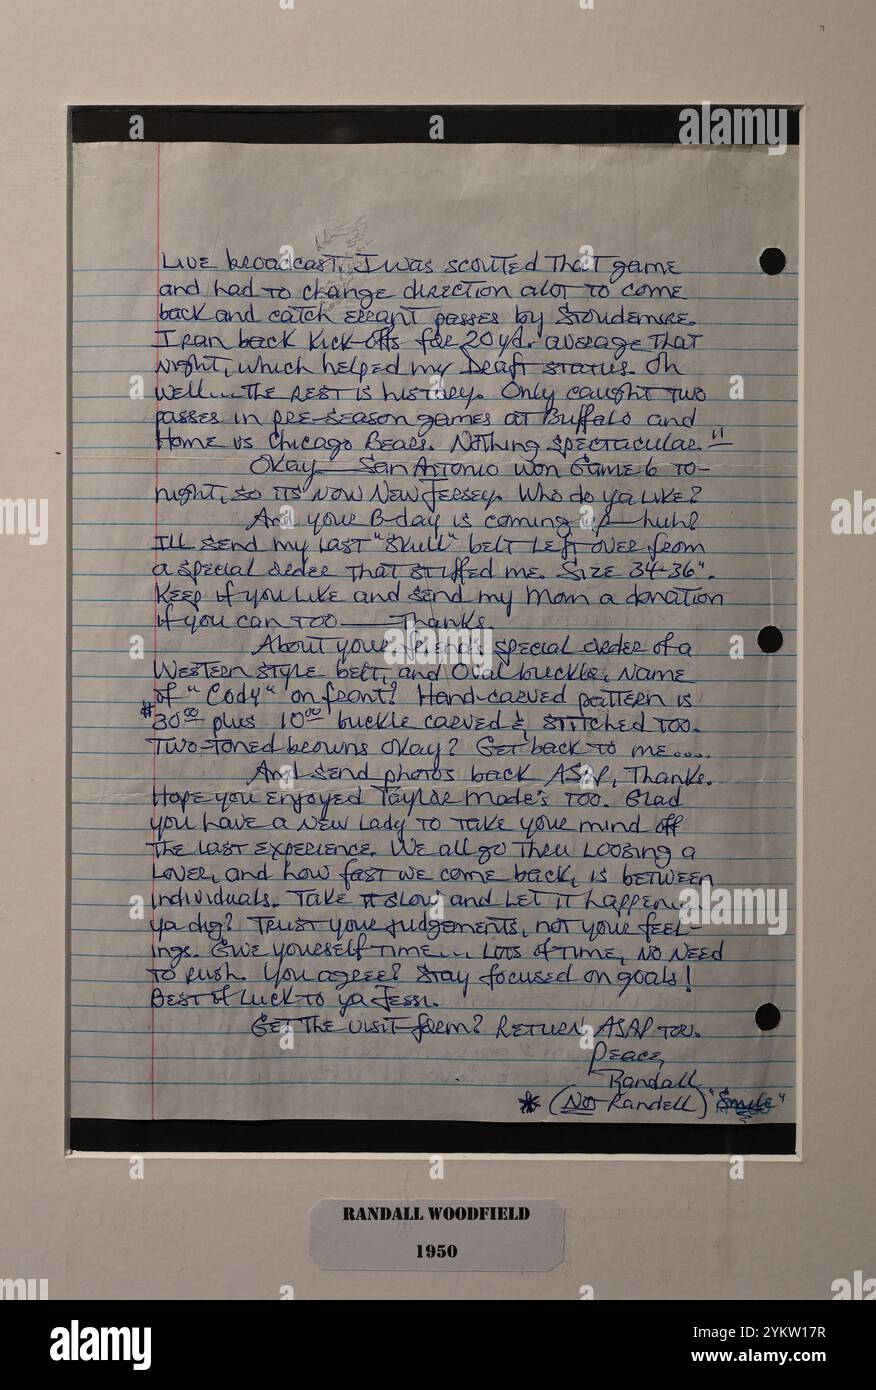 Live broadcast. I was scouted that game
and had to change direction alot to come
back and catch errant passes by Stoudemire.
I ran back kick-offs for 20 yd. average that
night, which helped my Draft status. Oh
well... the rest is history. Only caught two
passes in pre-season games at Buffalo and
Home vs Chicago Bears. Nothing spectacular."
Okay — San Antonio won Game 6 to-
night, so its now New Jersey. Who do ya like?
And your B-day is coming up — huh?
I'll send my last "Skull" belt left over from
a special order that stiffed me. Size 34-36".
Keep if you like and send my Mom a donation
if you can too — Thanks.
About your friends special order of a
Western style belt, and Oval buckle, name
of "Cody" on front? Hand-carved pattern is
$30.00 plus 10.00 buckle carved & stitched too.
Two-toned browns okay? Get back to me....
And send photos back ASAP, Thanks.
Hope you enjoyed Taylor Made's too. Glad
you have a new lady to take your mind off
the last experience. We all go thru loosing a
lover, and how fast we come back, is between
individuals. Take it slow and let it happen...
ya dig? Trust your judgements, not your feel-
ings. Give yourself time.... lots of time, no need
to rush. You agree? Stay focused on goals!
Best of luck to ya Jessi.
Get the visit form? Return ASAP too.
Peace,
Randall
* (Not Randell) "Smile"
RANDALL WOODFIELD
1950
alamy
Image ID: 2YKW17R
www.alamy.com